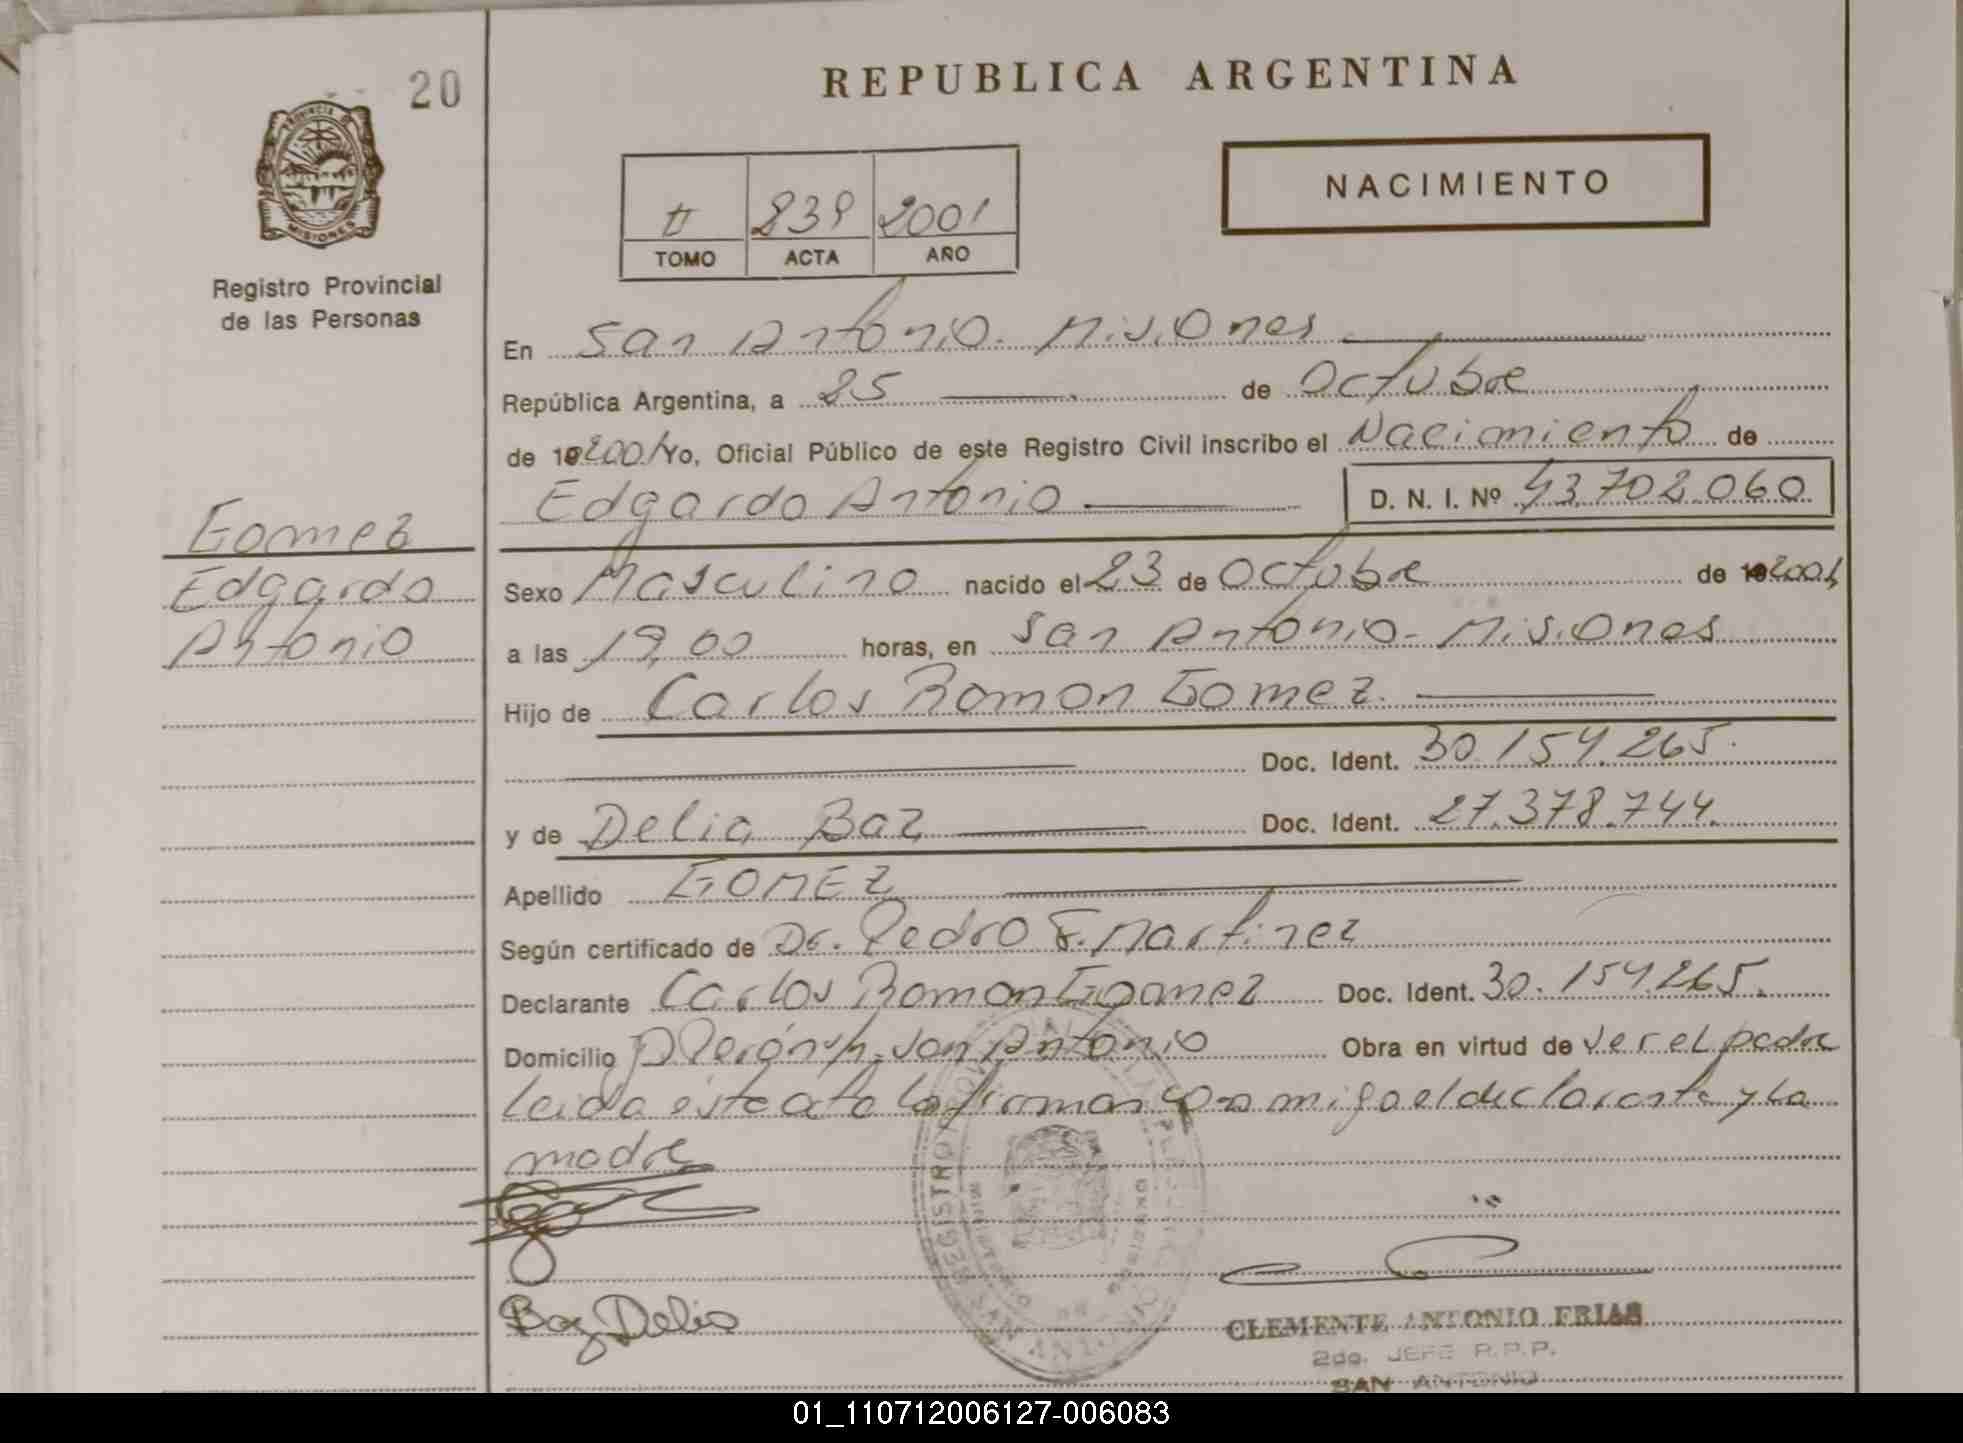 20
REPUBLICA ARGENTINA
PROVINCIA DE
MISIONES
Registro Provincial
de las Personas
NACIMIENTO
II 839 2001
TOMO ACTA AÑO
En San Antonio. Misiones
República Argentina, a 25 de Octubre
de 19 2001 Yo, Oficial Público de este Registro Civil inscribo el Nacimiento de
Edgardo Antonio D. N. I. Nº 43.702.060
Gomez
Edgardo
Antonio
Sexo Masculino nacido el 23 de Octubre de 19 2001
a las 19,00 horas, en San Antonio - Misiones
Hijo de Carlos Ramon Gomez.
Doc. Ident. 30.154.265.
y de Delia Baz Doc. Ident. 27.378.744.
Apellido GOMEZ
Según certificado de Dr. Pedro F. Martinez
Declarante Carlos Ramon Gomez Doc. Ident. 30.154.265.
Domicilio San Antonio Obra en virtud de ser el padre
leida este acta la firman con migo el declarante y la
madre
Baz Delia
CLEMENTE ANTONIO FRIAS
2do. JEFE R.P.P.
SAN ANTONIO
01_110712006127-006083